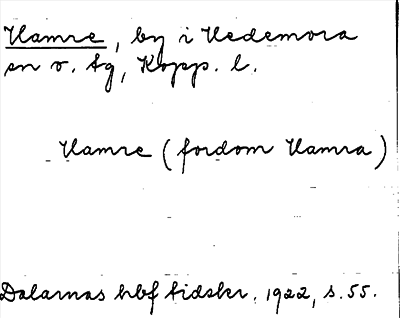 Hamre, by i Hedemora
sn o. tg, Kopp. l.
Hamre (fordom Hamra)
Dalarnas hbf tidskr. 1922, s. 55.